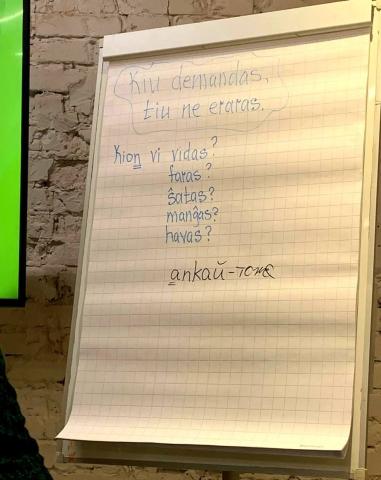 Kiu demandas,
tiu ne eraras.
Kion vi vidas?
faras?
ŝatas?
manĝas?
havas?
ankaŭ - тоже